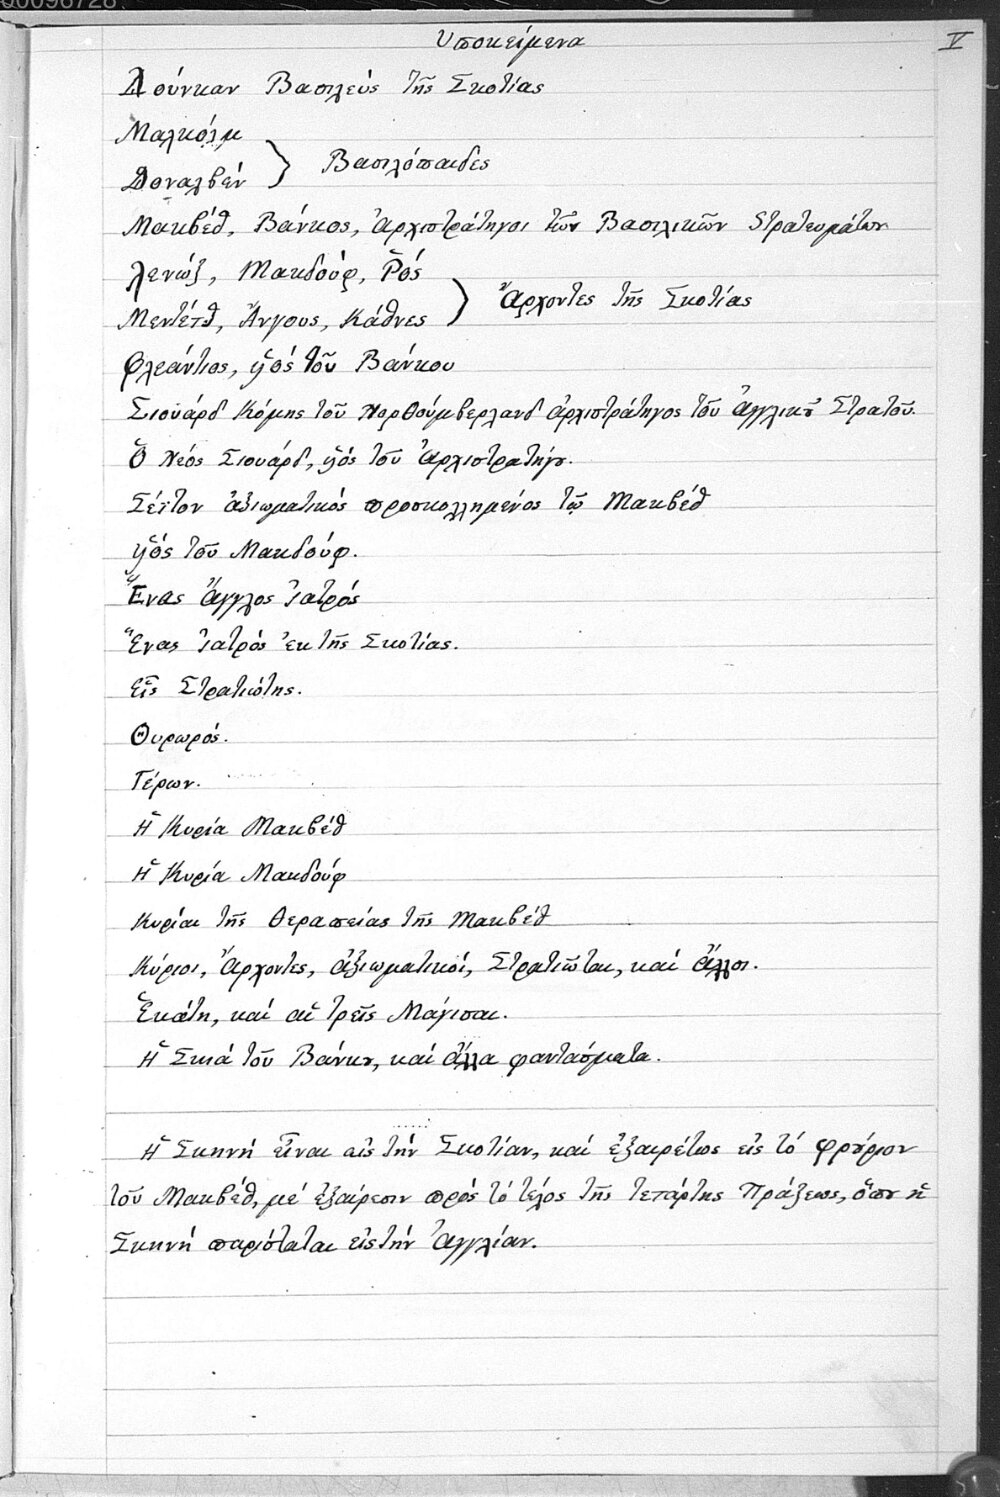 00096728
Ὑποκείμενα
V
Δούνκαν Βασιλεύς τῆς Σκοτίας
Μαλκόλμ
Βασιλόπαιδες
Δοναλβέν
Μακβέθ, Βάνκος, Ἀρχιστράτηγοι τῶν Βασιλικῶν Στρατευμάτων
Λενώξ, Μακδούφ, Ῥός
Ἄρχοντες τῆς Σκοτίας
Μεντέτθ, Ἄνγους, Κάθνες
Φλεάντιος, ὑιός τοῦ Βάνκου
Σιουάρδ Κόμης τοῦ Νορθούμβερλανδ ἀρχιστράτηγος τοῦ Ἀγγλικȣ͂ Στρατοῦ.
Ὁ Νέος Σιουάρδ, ὑιός τοῦ Ἀρχιστρατήγȣ.
Σέϊτον ἀξιωματικός προσκολλημένος τῷ Μακβέθ
ὑιός τοῦ Μακδούφ.
Ἕνας Ἄγγλος Ἰατρός
Ἕνας Ἰατρός ἐκ τῆς Σκοτίας.
Εἷς Στρατιώτης.
Θυρωρός.
Γέρων.
Ἡ Κυρία Μακβέθ
Ἡ Κυρία Μακδούφ
Κυρίαι τῆς Θεραπείας τῆς Μακβέθ
Κύριοι, Ἄρχοντες, ἀξιωματικοί, Στρατιῶται, καί ἄλλοι.
Ἑκάτη, καί αἱ τρεῖς Μάγισσαι.
Ἡ Σκιά τοῦ Βάνκȣ, καί ἄλλα φαντάσματα.
Ἡ Σκηνή εἶναι εἰς τήν Σκοτίαν, καί ἐξαιρέτως εἰς τό φρȣ́ριον
τοῦ Μακβέθ, μέ ἐξαίρεσιν πρός τό τέλος τῆς τετάρτης Πράξεως, ὅπȣ ἡ
Σκηνή παρίσταται εἰς τήν Ἀγγλίαν.